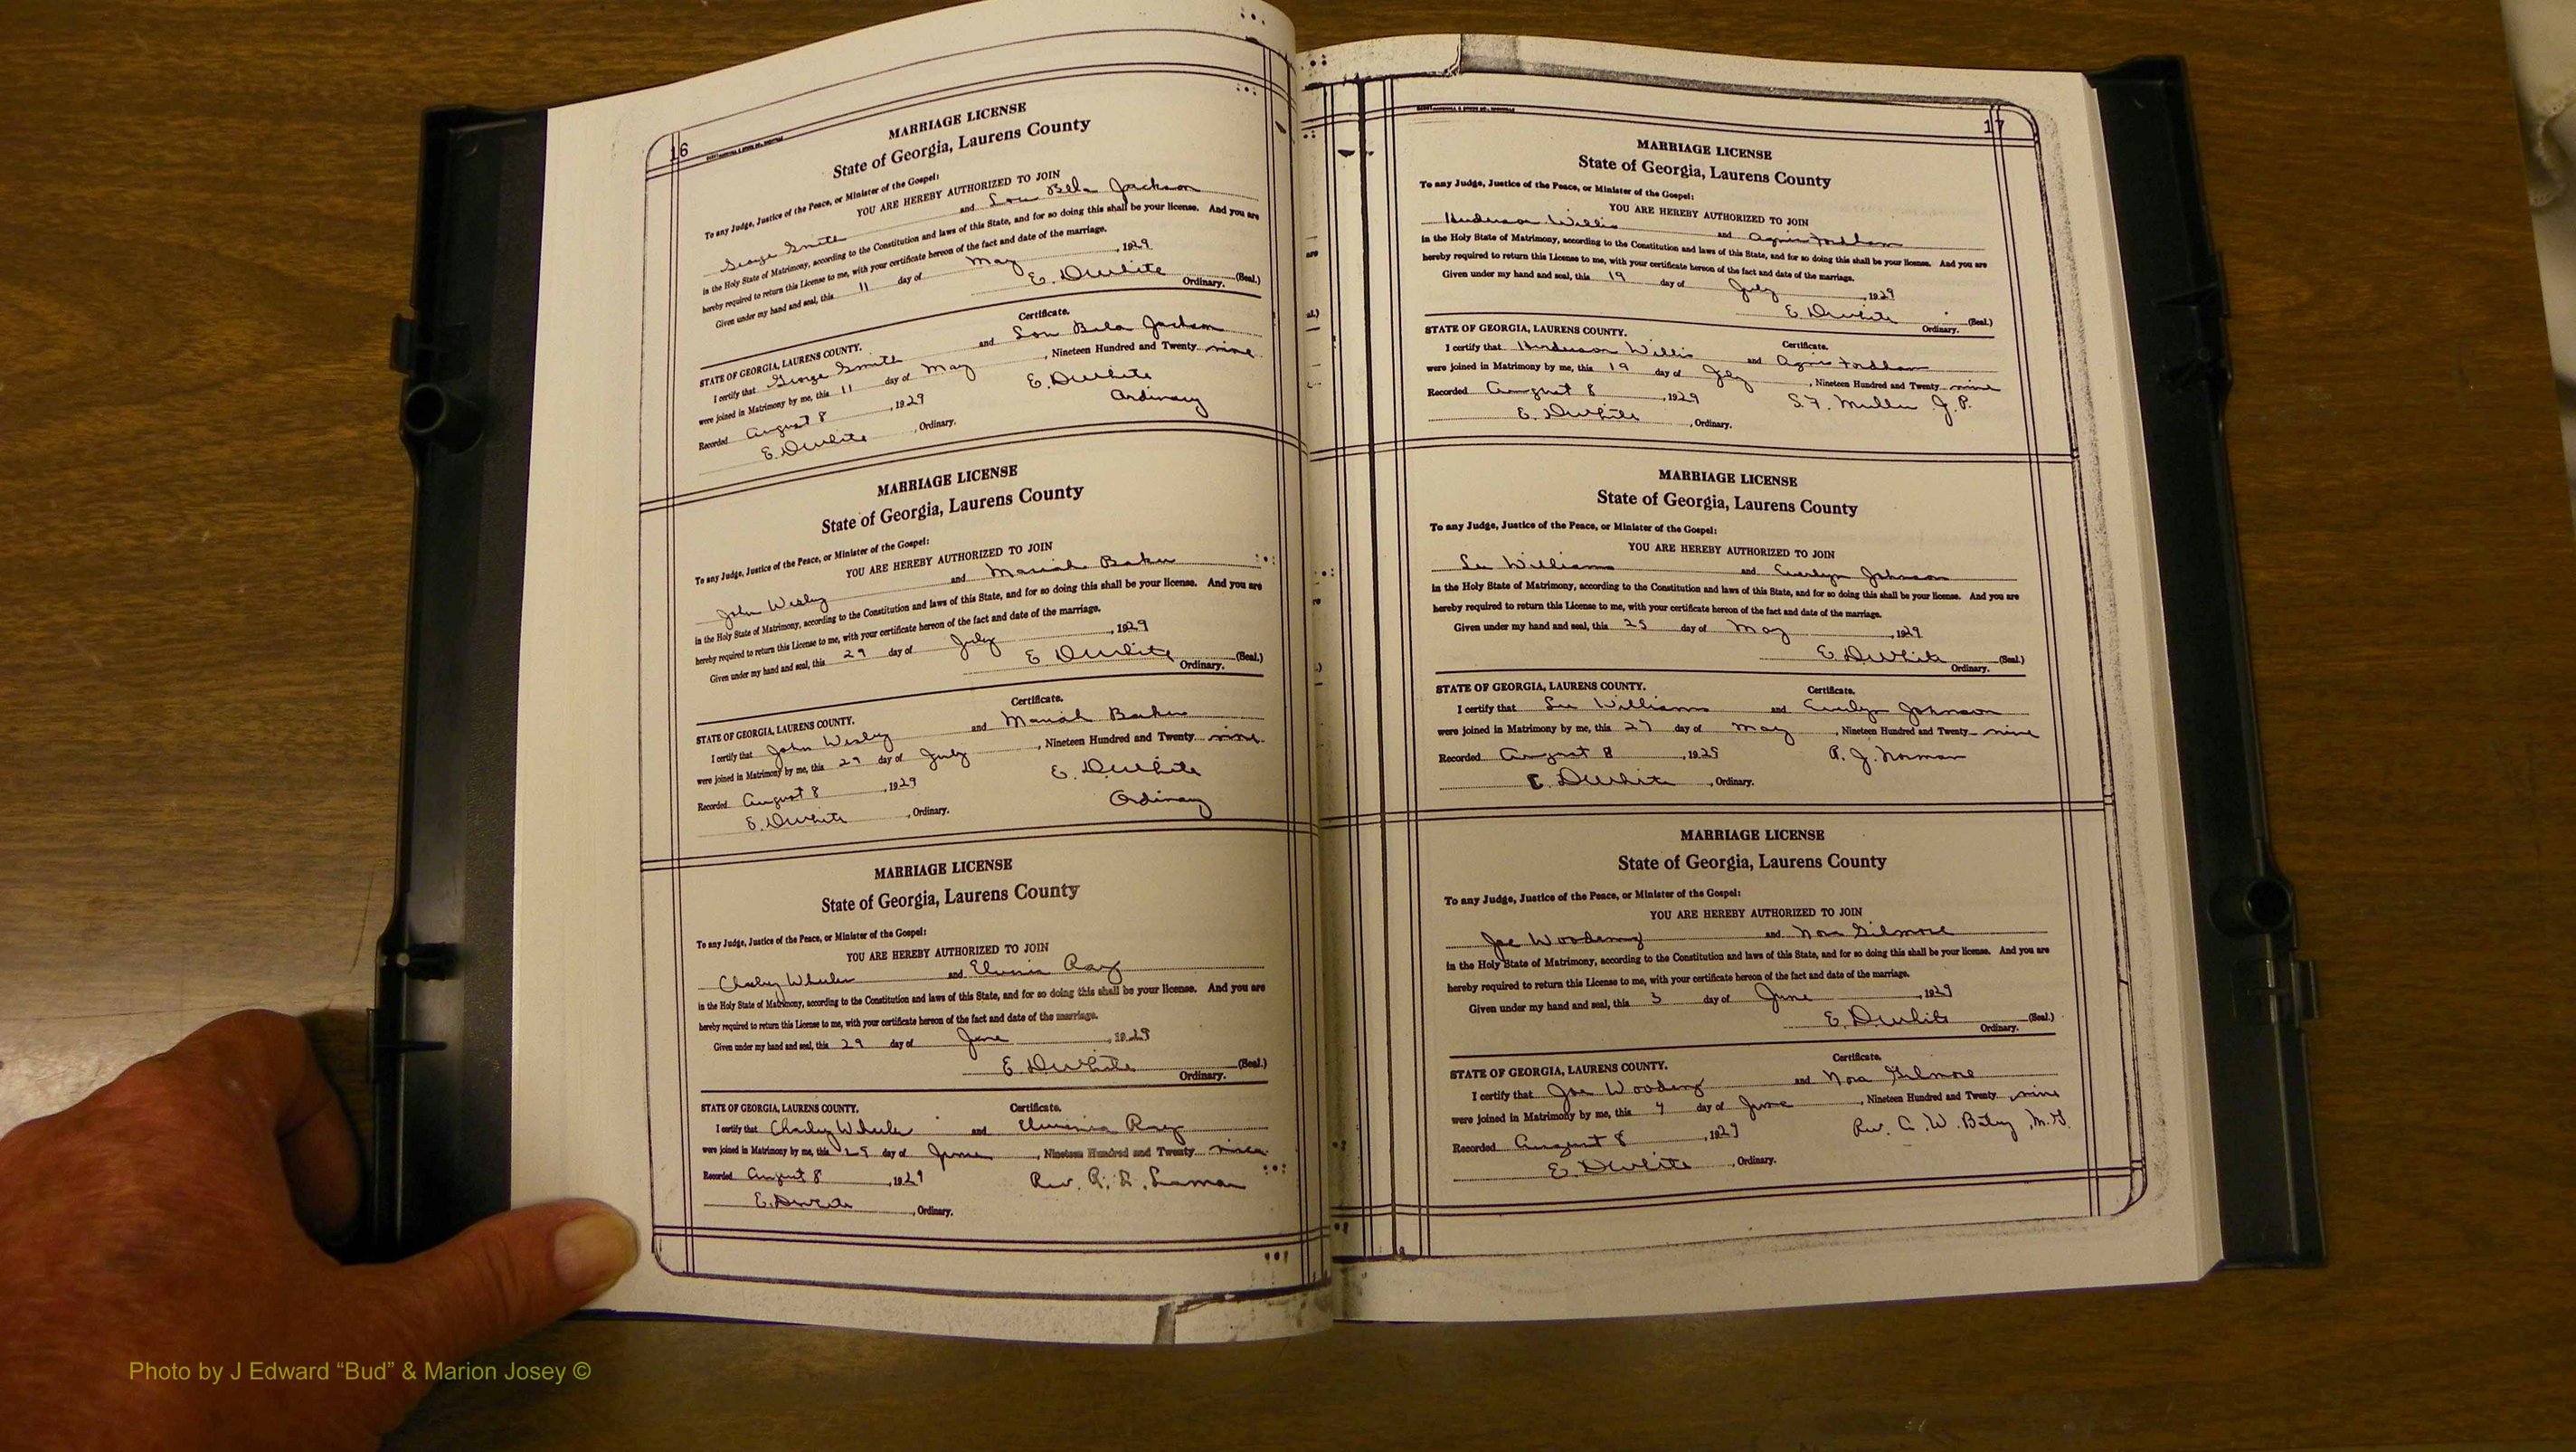 16
MARRIAGE LICENSE
State of Georgia, Laurens County
To any Judge, Justice of the Peace, or Minister of the Gospel:
YOU ARE HEREBY AUTHORIZED TO JOIN
George Smith and Lou Bela Jackson
in the Holy State of Matrimony, according to the Constitution and laws of this State, and for so doing this shall be your license. And you are
hereby required to return this License to me, with your certificate hereon of the fact and date of the marriage.
Given under my hand and seal, this 11 day of May, 1929
E. D White (Seal.)
Ordinary.
Certificate.
STATE OF GEORGIA, LAURENS COUNTY.
I certify that George Smith and Lou Bela Jackson
were joined in Matrimony by me, this 11 day of May, Nineteen Hundred and Twenty nine
Recorded August 8, 1929 E. D White
E. D White, Ordinary. Ordinary
MARRIAGE LICENSE
State of Georgia, Laurens County
To any Judge, Justice of the Peace, or Minister of the Gospel:
YOU ARE HEREBY AUTHORIZED TO JOIN
John Wesley and Mariah Baker
in the Holy State of Matrimony, according to the Constitution and laws of this State, and for so doing this shall be your license. And you are
hereby required to return this License to me, with your certificate hereon of the fact and date of the marriage.
Given under my hand and seal, this 29 day of July, 1929
E D White (Seal.)
Ordinary.
Certificate.
STATE OF GEORGIA, LAURENS COUNTY.
I certify that John Wesley and Mariah Baker
were joined in Matrimony by me, this 29 day of July, Nineteen Hundred and Twenty nine
Recorded August 8, 1929 E. D. White
E. D White, Ordinary. Ordinary
MARRIAGE LICENSE
State of Georgia, Laurens County
To any Judge, Justice of the Peace, or Minister of the Gospel:
YOU ARE HEREBY AUTHORIZED TO JOIN
Charley Wheeler and Ray
in the Holy State of Matrimony, according to the Constitution and laws of this State, and for so doing this shall be your license. And you are
hereby required to return this License to me, with your certificate hereon of the fact and date of the marriage.
Given under my hand and seal, this 29 day of June, 1929
E. D White (Seal.)
Ordinary.
STATE OF GEORGIA, LAURENS COUNTY. Certificate.
I certify that Charley Wheeler and Ray
were joined in Matrimony by me, this 29 day of June, Nineteen Hundred and Twenty nine
Recorded August 8, 1929 Rev.
E. D White, Ordinary.
17
MARRIAGE LICENSE
State of Georgia, Laurens County
To any Judge, Justice of the Peace, or Minister of the Gospel:
YOU ARE HEREBY AUTHORIZED TO JOIN
Henderson Willis and Agnes Fordham
in the Holy State of Matrimony, according to the Constitution and laws of this State, and for so doing this shall be your license. And you are
hereby required to return this License to me, with your certificate hereon of the fact and date of the marriage.
Given under my hand and seal, this 19 day of July, 1929
E. D White (Seal.)
Ordinary.
STATE OF GEORGIA, LAURENS COUNTY. Certificate.
I certify that Henderson Willis and Agnes Fordham
were joined in Matrimony by me, this 19 day of July, Nineteen Hundred and Twenty nine
Recorded August 8, 1929 S. F. J. P.
E. D White, Ordinary.
MARRIAGE LICENSE
State of Georgia, Laurens County
To any Judge, Justice of the Peace, or Minister of the Gospel:
YOU ARE HEREBY AUTHORIZED TO JOIN
Lee Williams and Everlyn Johnson
in the Holy State of Matrimony, according to the Constitution and laws of this State, and for so doing this shall be your license. And you are
hereby required to return this License to me, with your certificate hereon of the fact and date of the marriage.
Given under my hand and seal, this 25 day of May, 1929
E. D White (Seal.)
Ordinary.
STATE OF GEORGIA, LAURENS COUNTY. Certificate.
I certify that Lee Williams and Evelyn Johnson
were joined in Matrimony by me, this 27 day of May, Nineteen Hundred and Twenty nine
Recorded August 8, 1929 P. J. Norman
E. D White, Ordinary.
MARRIAGE LICENSE
State of Georgia, Laurens County
To any Judge, Justice of the Peace, or Minister of the Gospel:
YOU ARE HEREBY AUTHORIZED TO JOIN
Joe and Nora Gilmore
in the Holy State of Matrimony, according to the Constitution and laws of this State, and for so doing this shall be your license. And you are
hereby required to return this License to me, with your certificate hereon of the fact and date of the marriage.
Given under my hand and seal, this 3 day of June, 1929
E. D White (Seal.)
Ordinary.
STATE OF GEORGIA, LAURENS COUNTY. Certificate.
I certify that Joe and Nora Gilmore
were joined in Matrimony by me, this day of June, Nineteen Hundred and Twenty nine
Recorded August 8, 1929 Rev. C. W. M. G.
E. D White, Ordinary.
Photo by J Edward “Bud” & Marion Josey ©